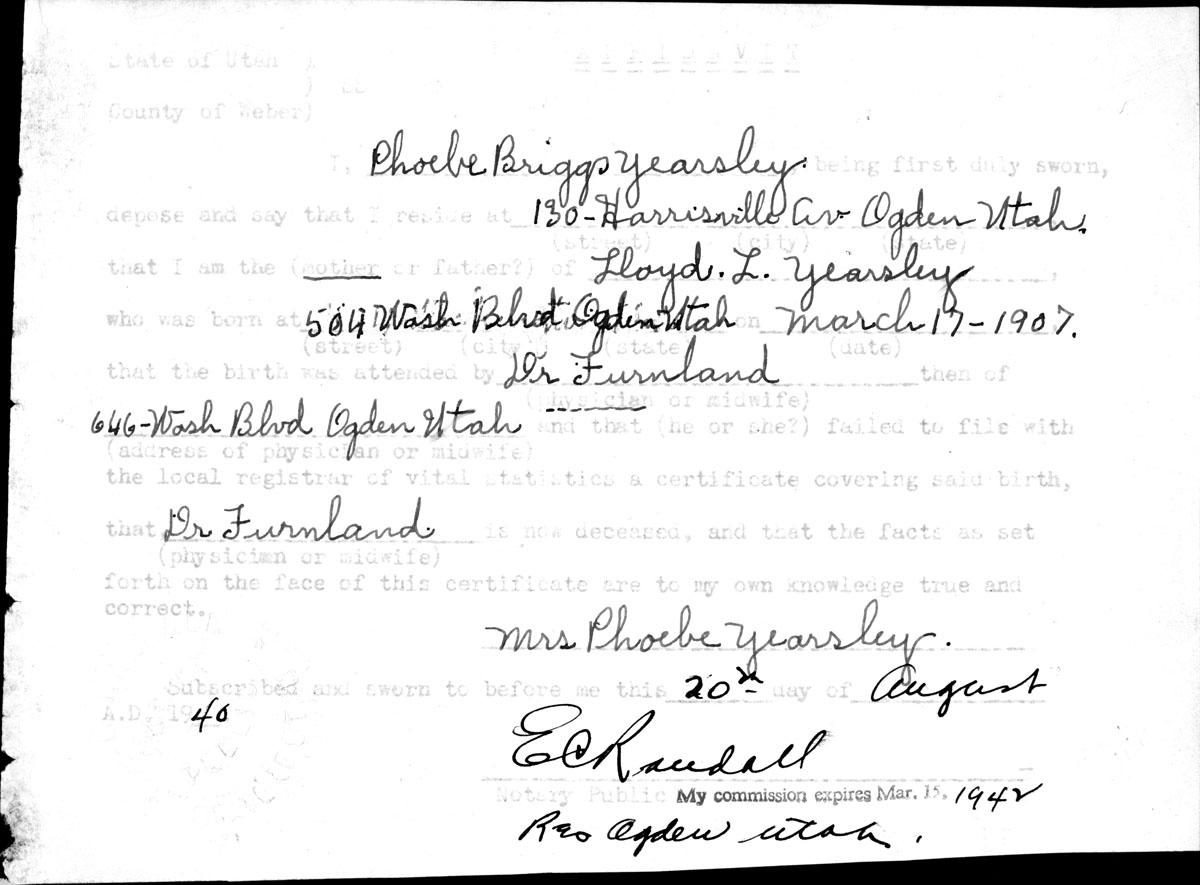 AFFIDAVIT
State of Utah )
) SS
County of Weber)
I, Phoebe Briggs Yearsley. being first duly sworn,
depose and say that I reside at 130-Harrisville Av Ogden Utah.
(street) (city) (state)
that I am the (mother or father?) of Lloyd. L. Yearsley,
who was born at 504 Wash Blvd Ogden Utah on March 17-1907.
(street) (city) (state) (date)
that the birth was attended by Dr Furnland then of
(physician or midwife)
646-Wash Blvd Ogden Utah and that (he or she?) failed to file with
(address of physician or midwife)
the local registrar of vital statistics a certificate covering said birth,
that Dr Furnland. is now deceased, and that the facts as set
(physician or midwife)
forth on the face of this certificate are to my own knowledge true and
correct.
Mrs Phoebe Yearsley.
Subscribed and sworn to before me this 20th day of August
A.D. 1940
E C Randall
Notary Public My commission expires Mar. 15, 1942
Res Ogden Utah.